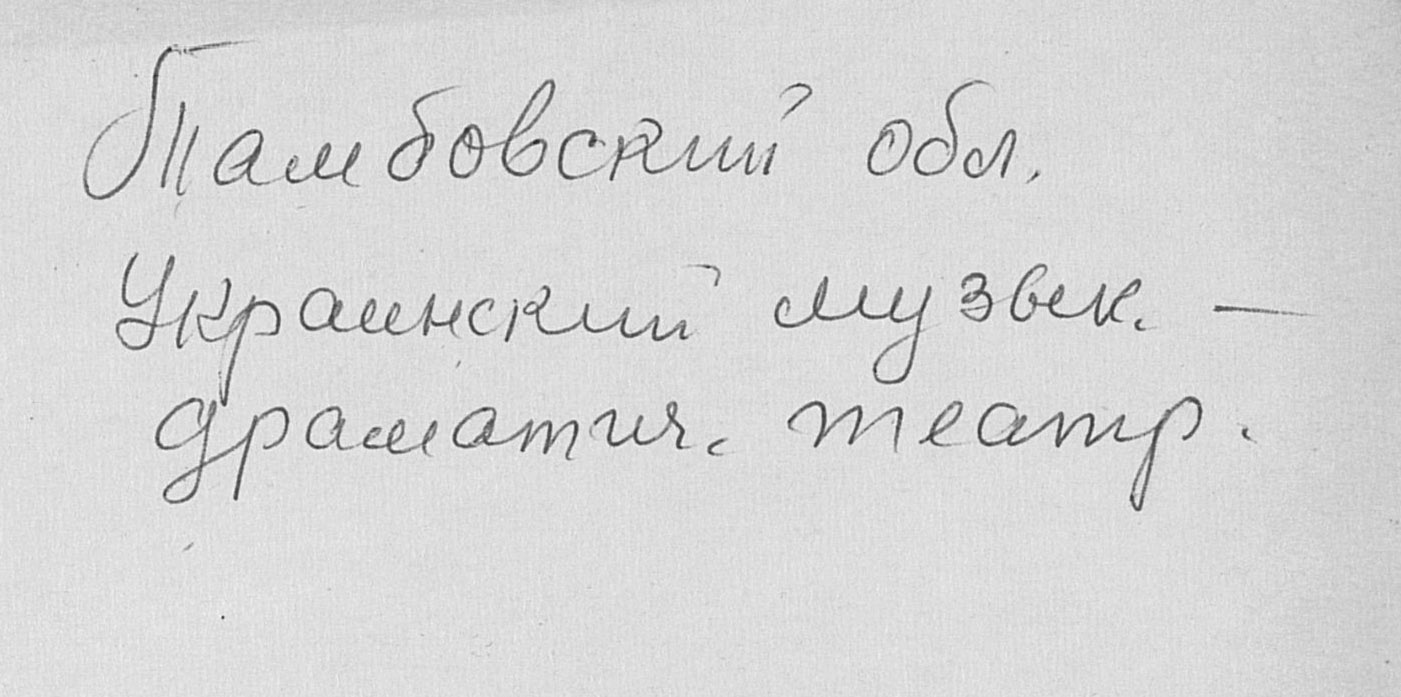 Тамбовский обл.
Украинский музык. —
драматич. театр.